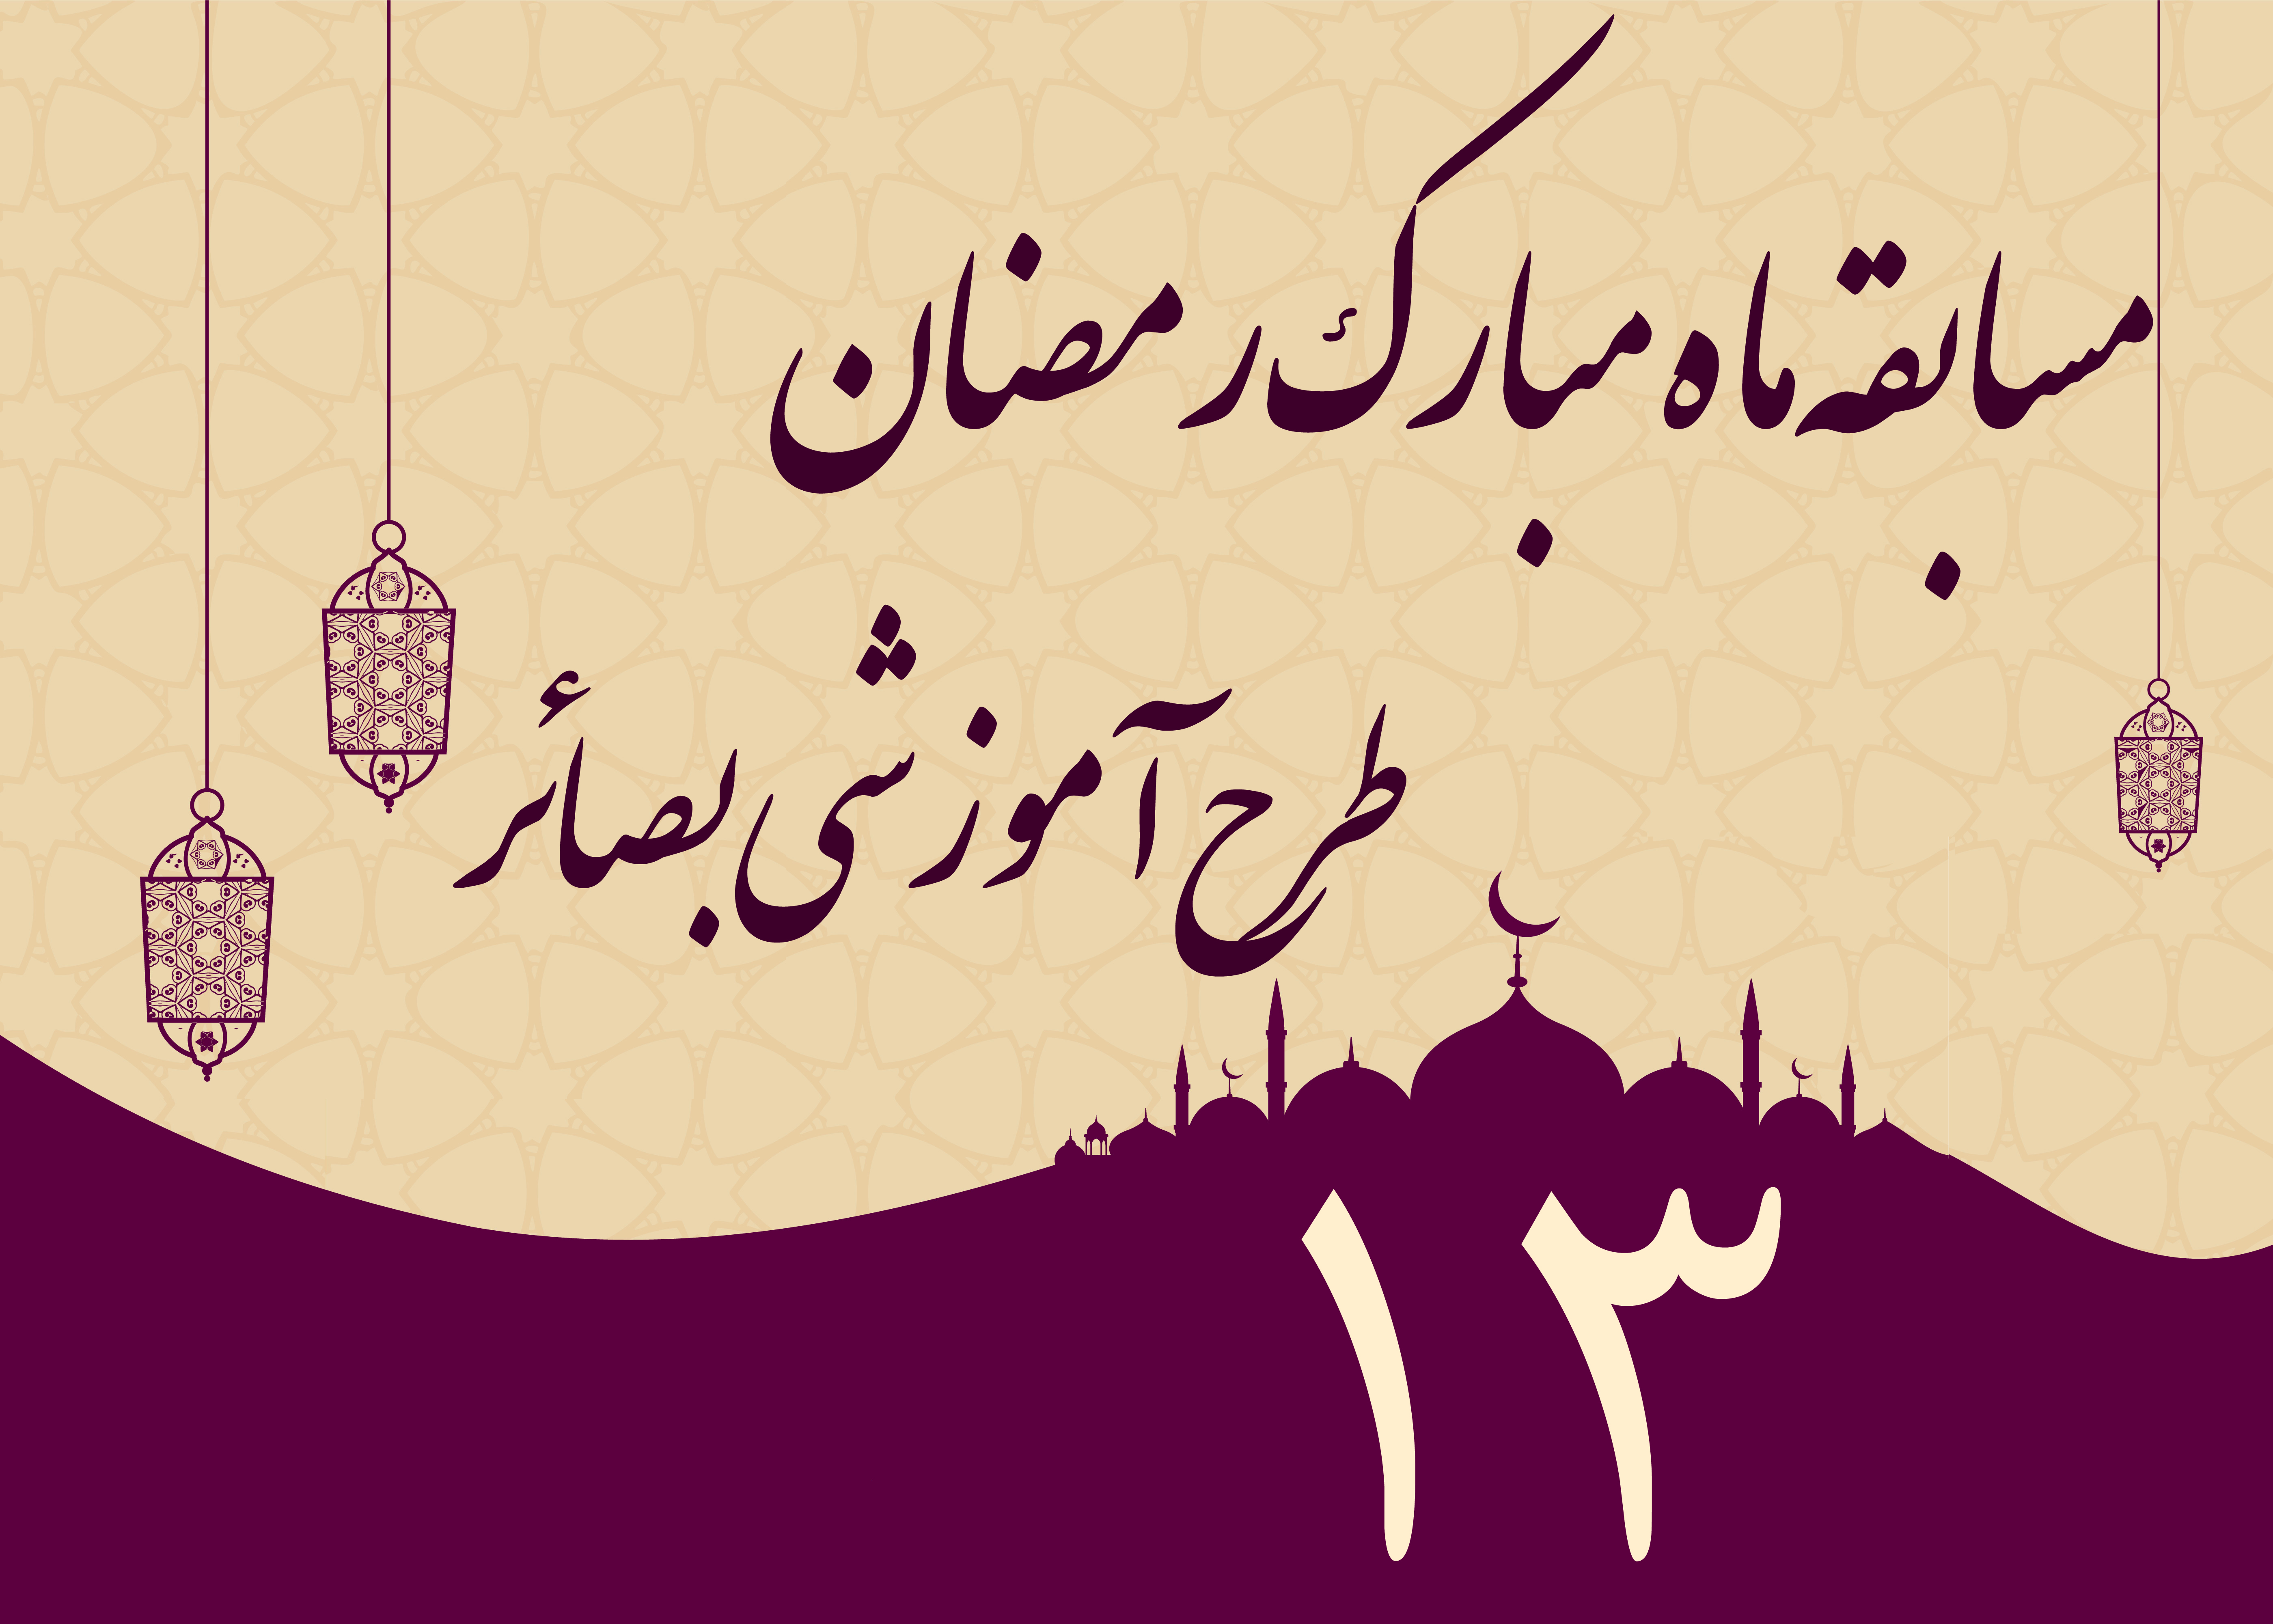 مسابقه ماه مبارک رمضان
طرح آموزشی بصائر
۱۳